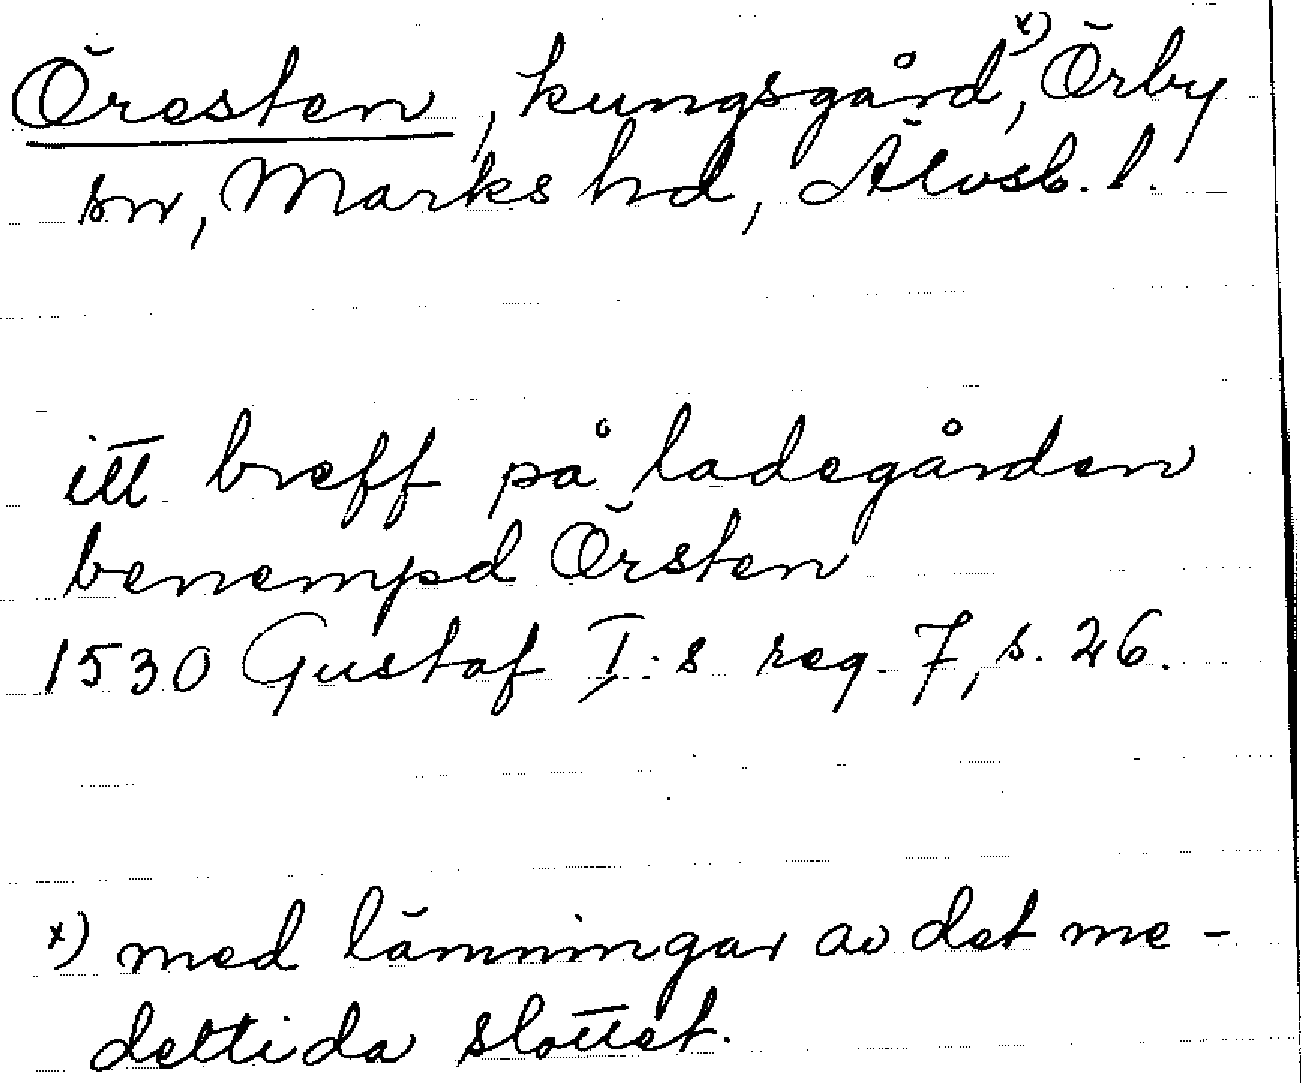 Öresten, kungsgård,x) Örby
sn, Marks hd, Älvsb. l.
itt breff på ladegården
benempd Örsten
1530 Gustaf I:s reg. 7, s. 26.
x) med lämningar av det me-
deltida slottet.